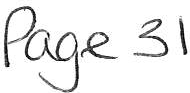 Page 31